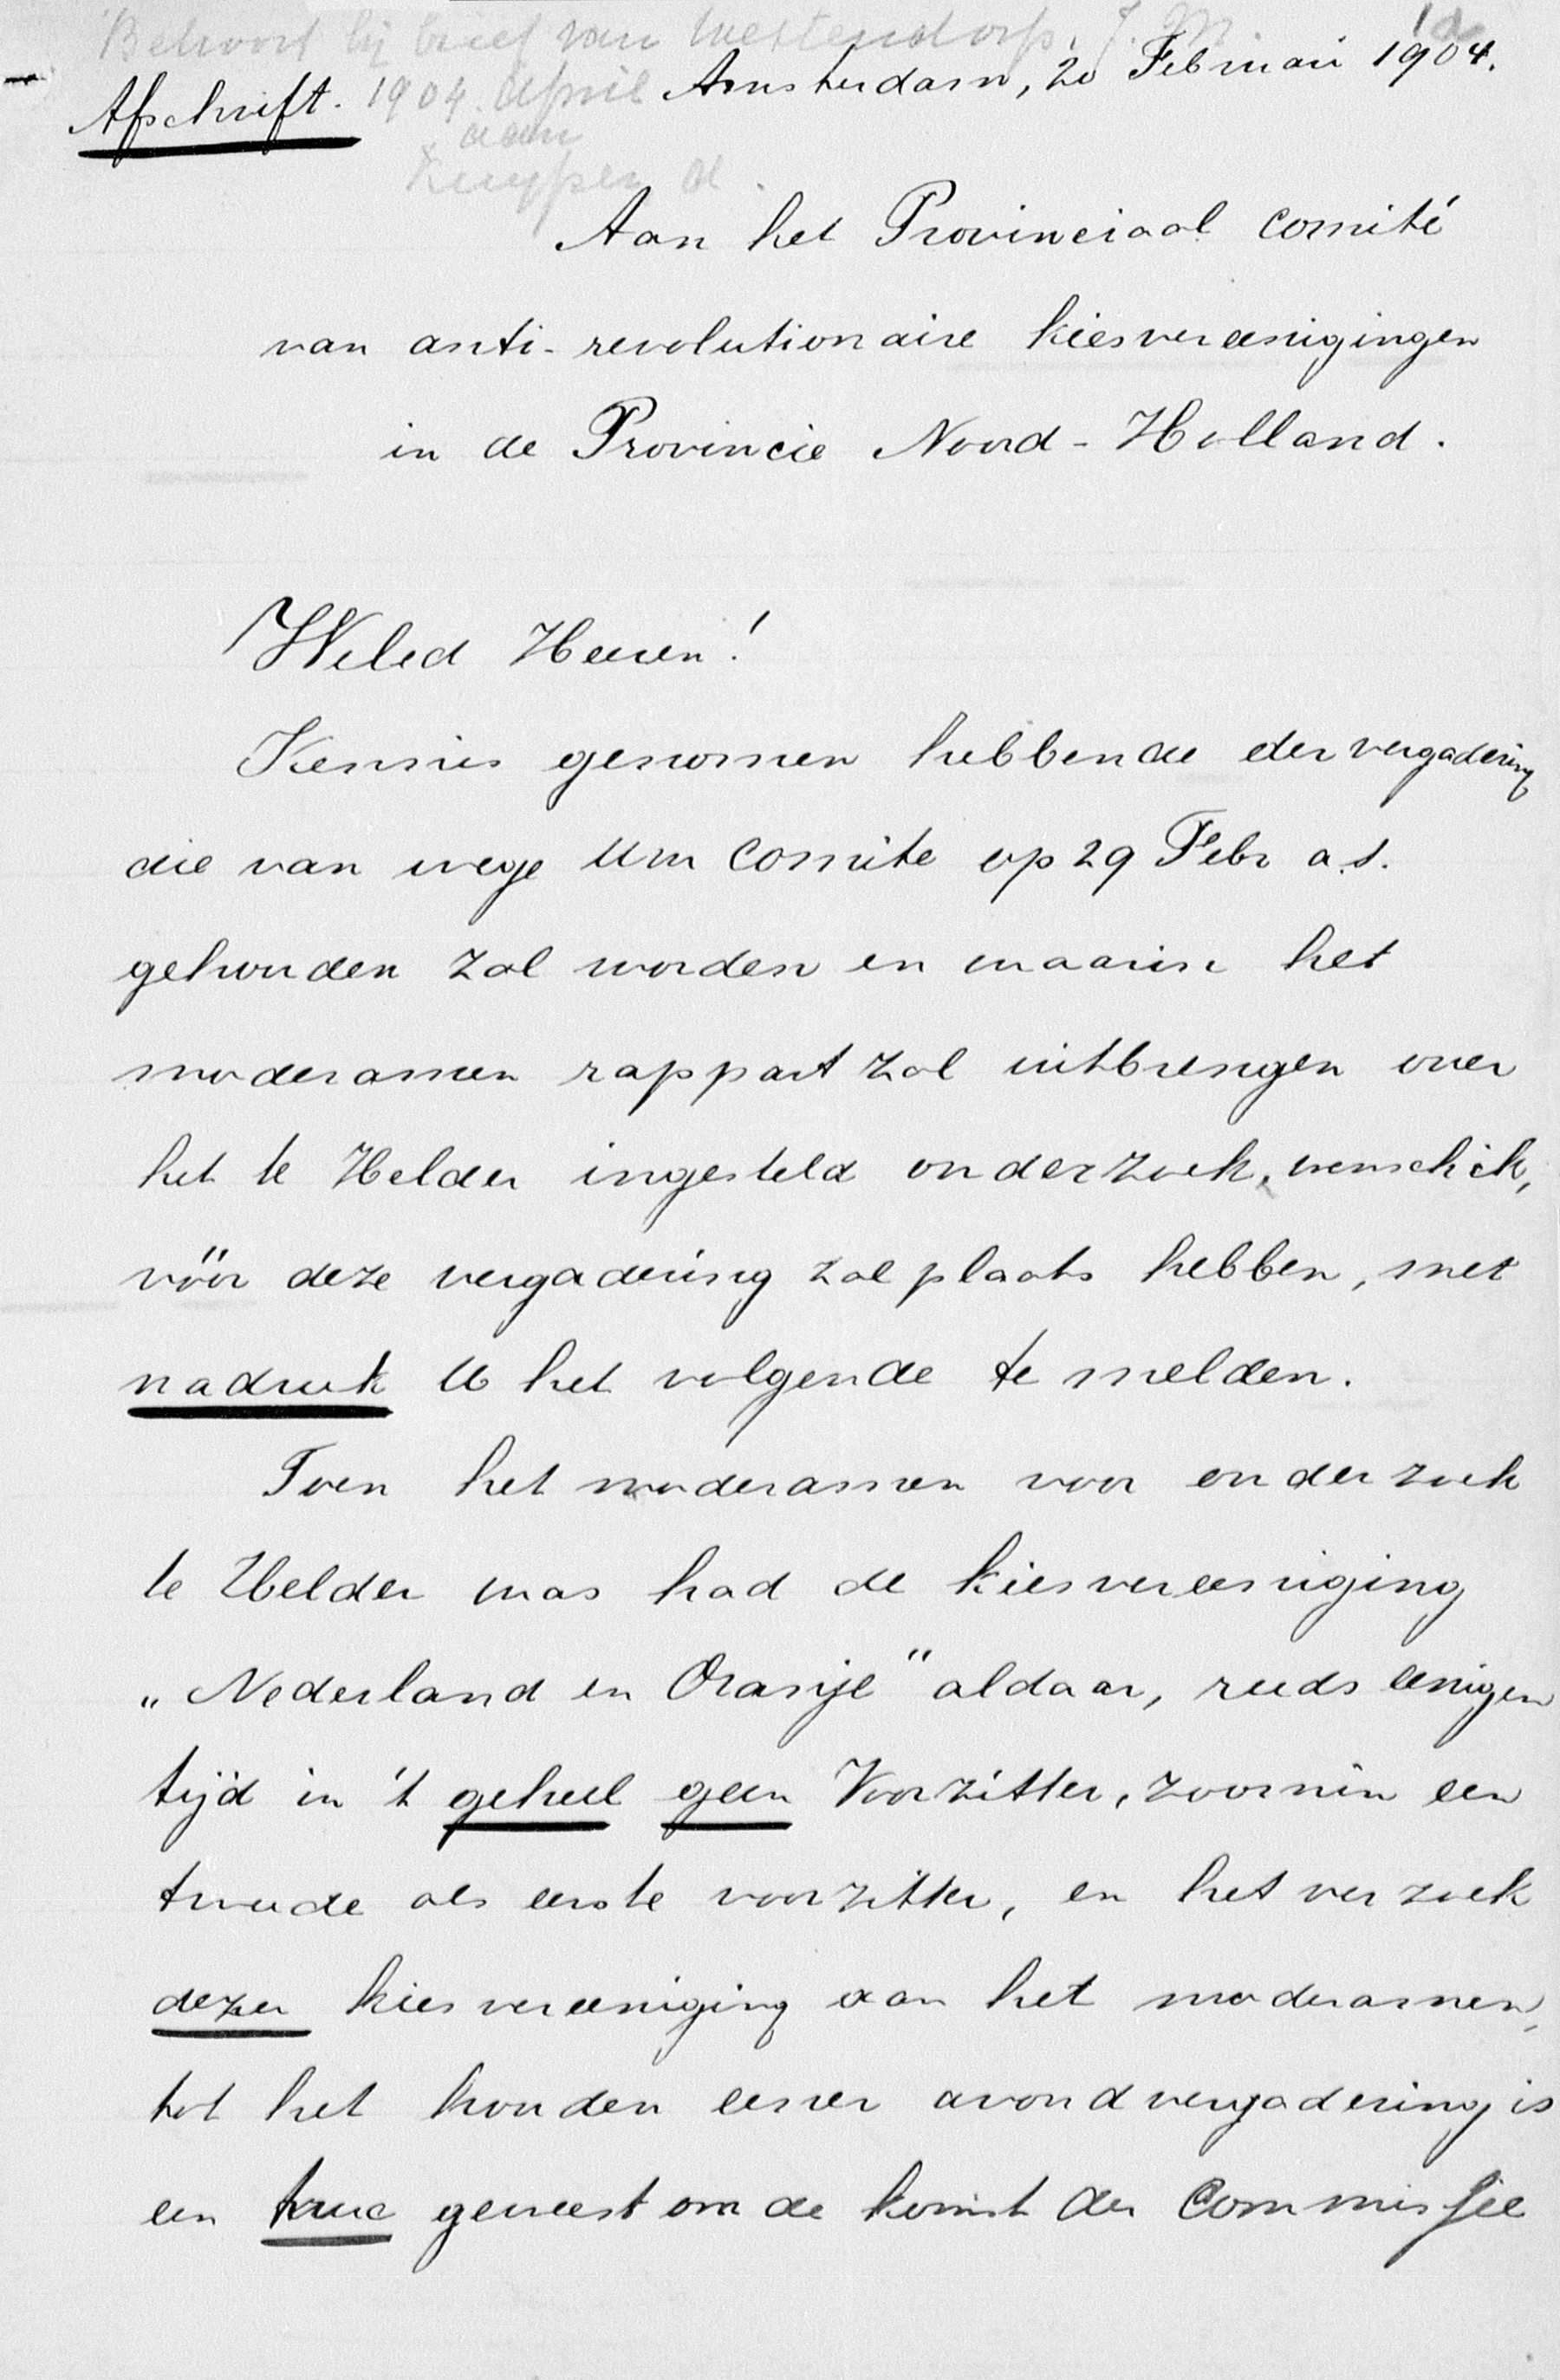 Behoort bij brief van Westendorp, J. M.
1904. April
aan
Kuyper A.
Afschrift. Amsterdam, 20 Februari 1904.
Aan het Provinciaal comité
van anti-revolutionaire kiesvereenigingen
in de Provincie Noord-Holland.
WelEd Heeren!
Kennis genomen hebbende der vergadering
die van wege Uw Comite op 29 Febr a.s.
gehouden zal worden en waarin het
moderamen rapport zal uitbrengen over
het te Helder ingesteld onderzoek, wensch ik,
vóór deze vergadering zal plaats hebben, met
nadruk U het volgende te melden.
Toen het moderamen voor onderzoek
te Helder was had de kiesvereeniging
„Nederland en Oranje" aldaar, reeds eenigen
tijd in 't geheel geen Voorzitter, zoomin een
tweede als eerste voorzitter, en het verzoek
dezer kiesvereeniging aan het moderamen,
tot het houden eener avondvergadering is
een truc geweest om de komst der Commissie